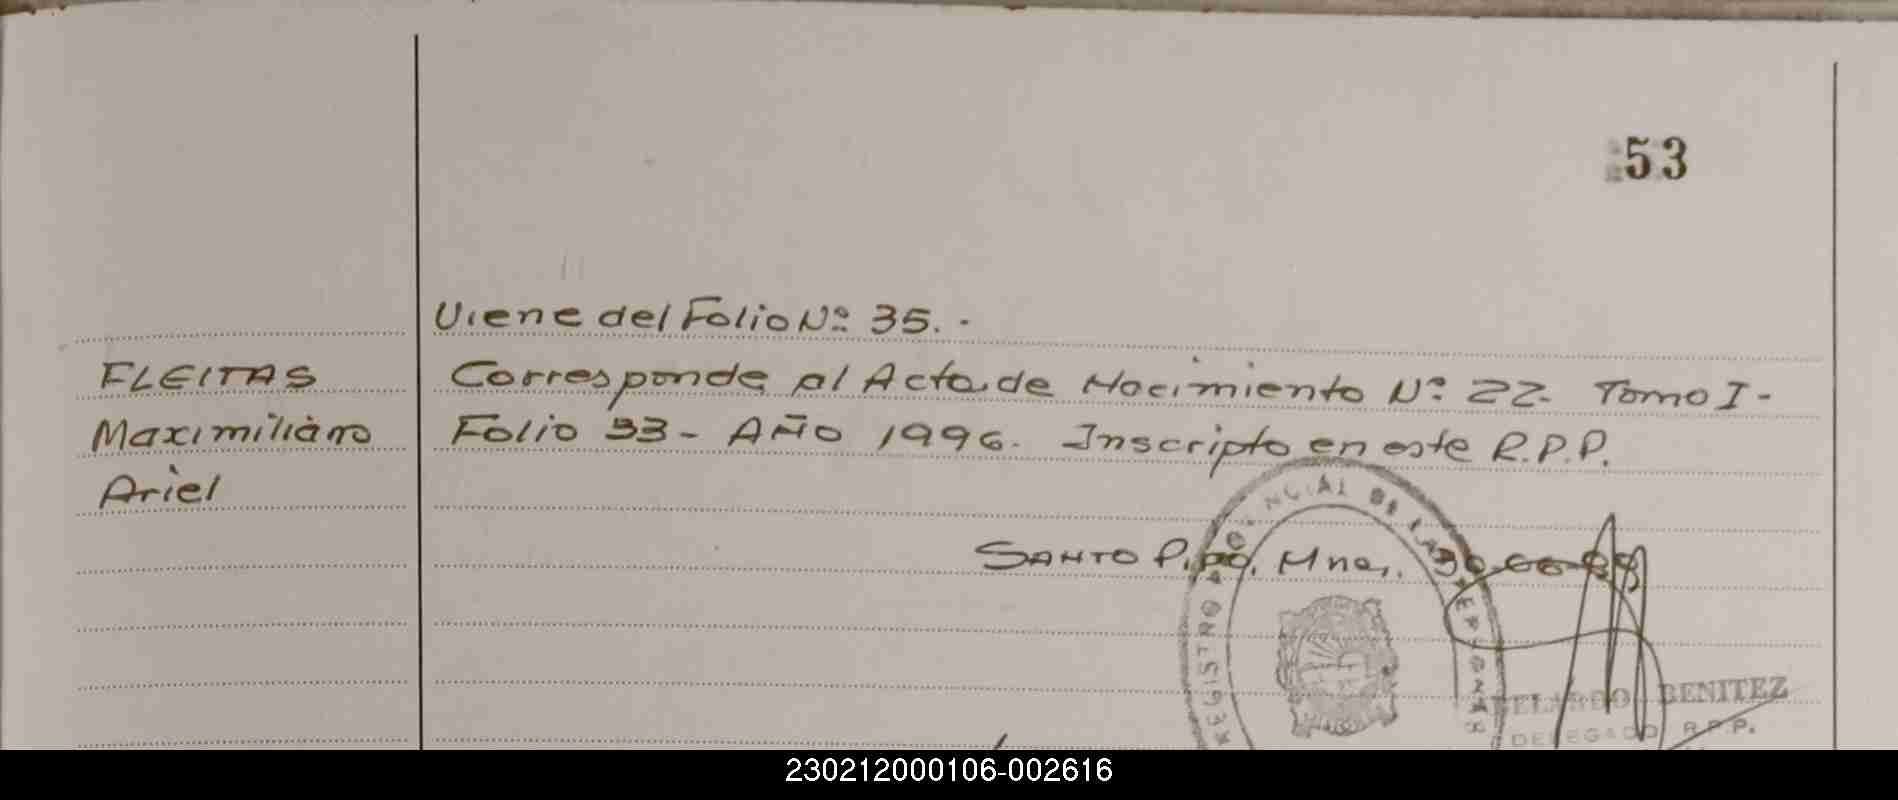 53
Viene del Folio Nº 35.-
FLEITAS
Maximiliano
Ariel
Corresponde al Acta de Nacimiento Nº 22. Tomo I-
Folio 33- AÑO 1996. Inscripto en este R.P.P.
SANTO Pipó, Mnes.
REGISTRO PROVINCIAL DE LAS PERSONAS
ABELARDO BENITEZ
DELEGADO R.P.P.
230212000106-002616